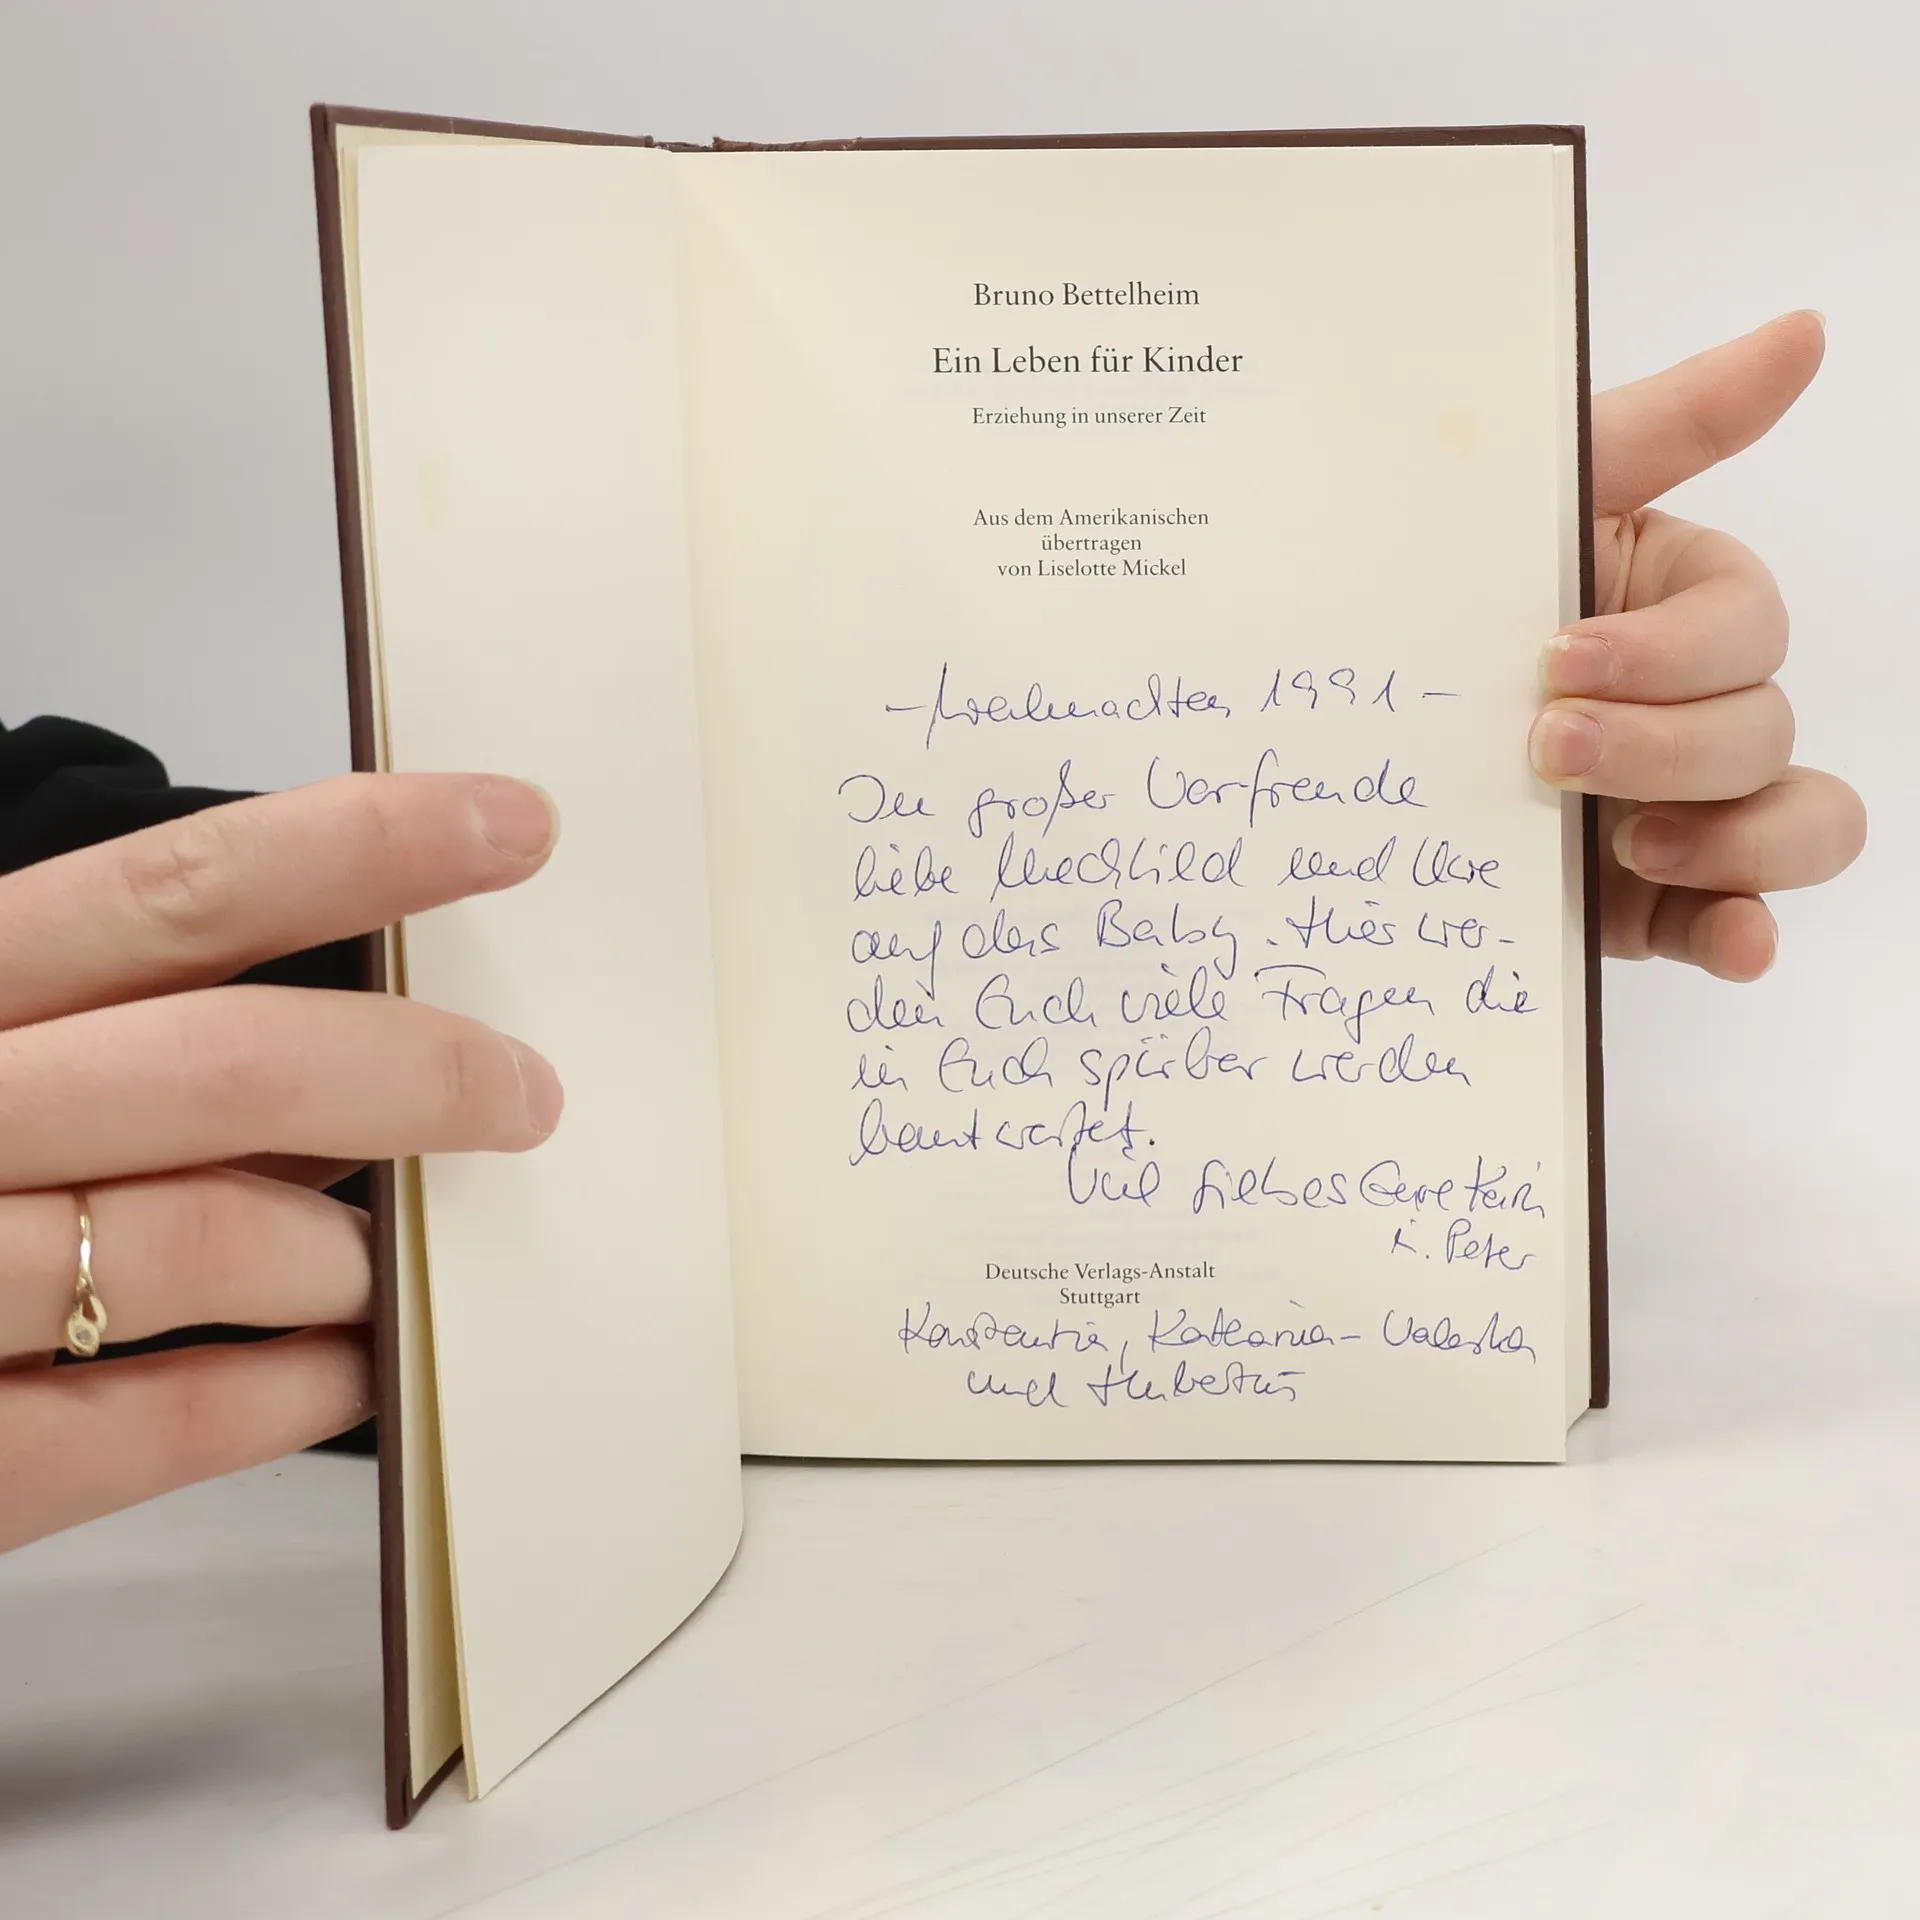 Bruno Bettelheim
Ein Leben für Kinder
Erziehung in unserer Zeit
Aus dem Amerikanischen
übertragen
von Liselotte Mickel
– Weihnachten 1991 –
In großer Vorfreude
liebe Mechtild und Uwe
auf das Baby. Hier wer-
den Euch viele Fragen die
in Euch spürbar werden
beantwortet.
Viel Liebes Eure
u. Peter
Deutsche Verlags-Anstalt
Stuttgart
Konstantin, Katharina-Valeska
und Hubertus